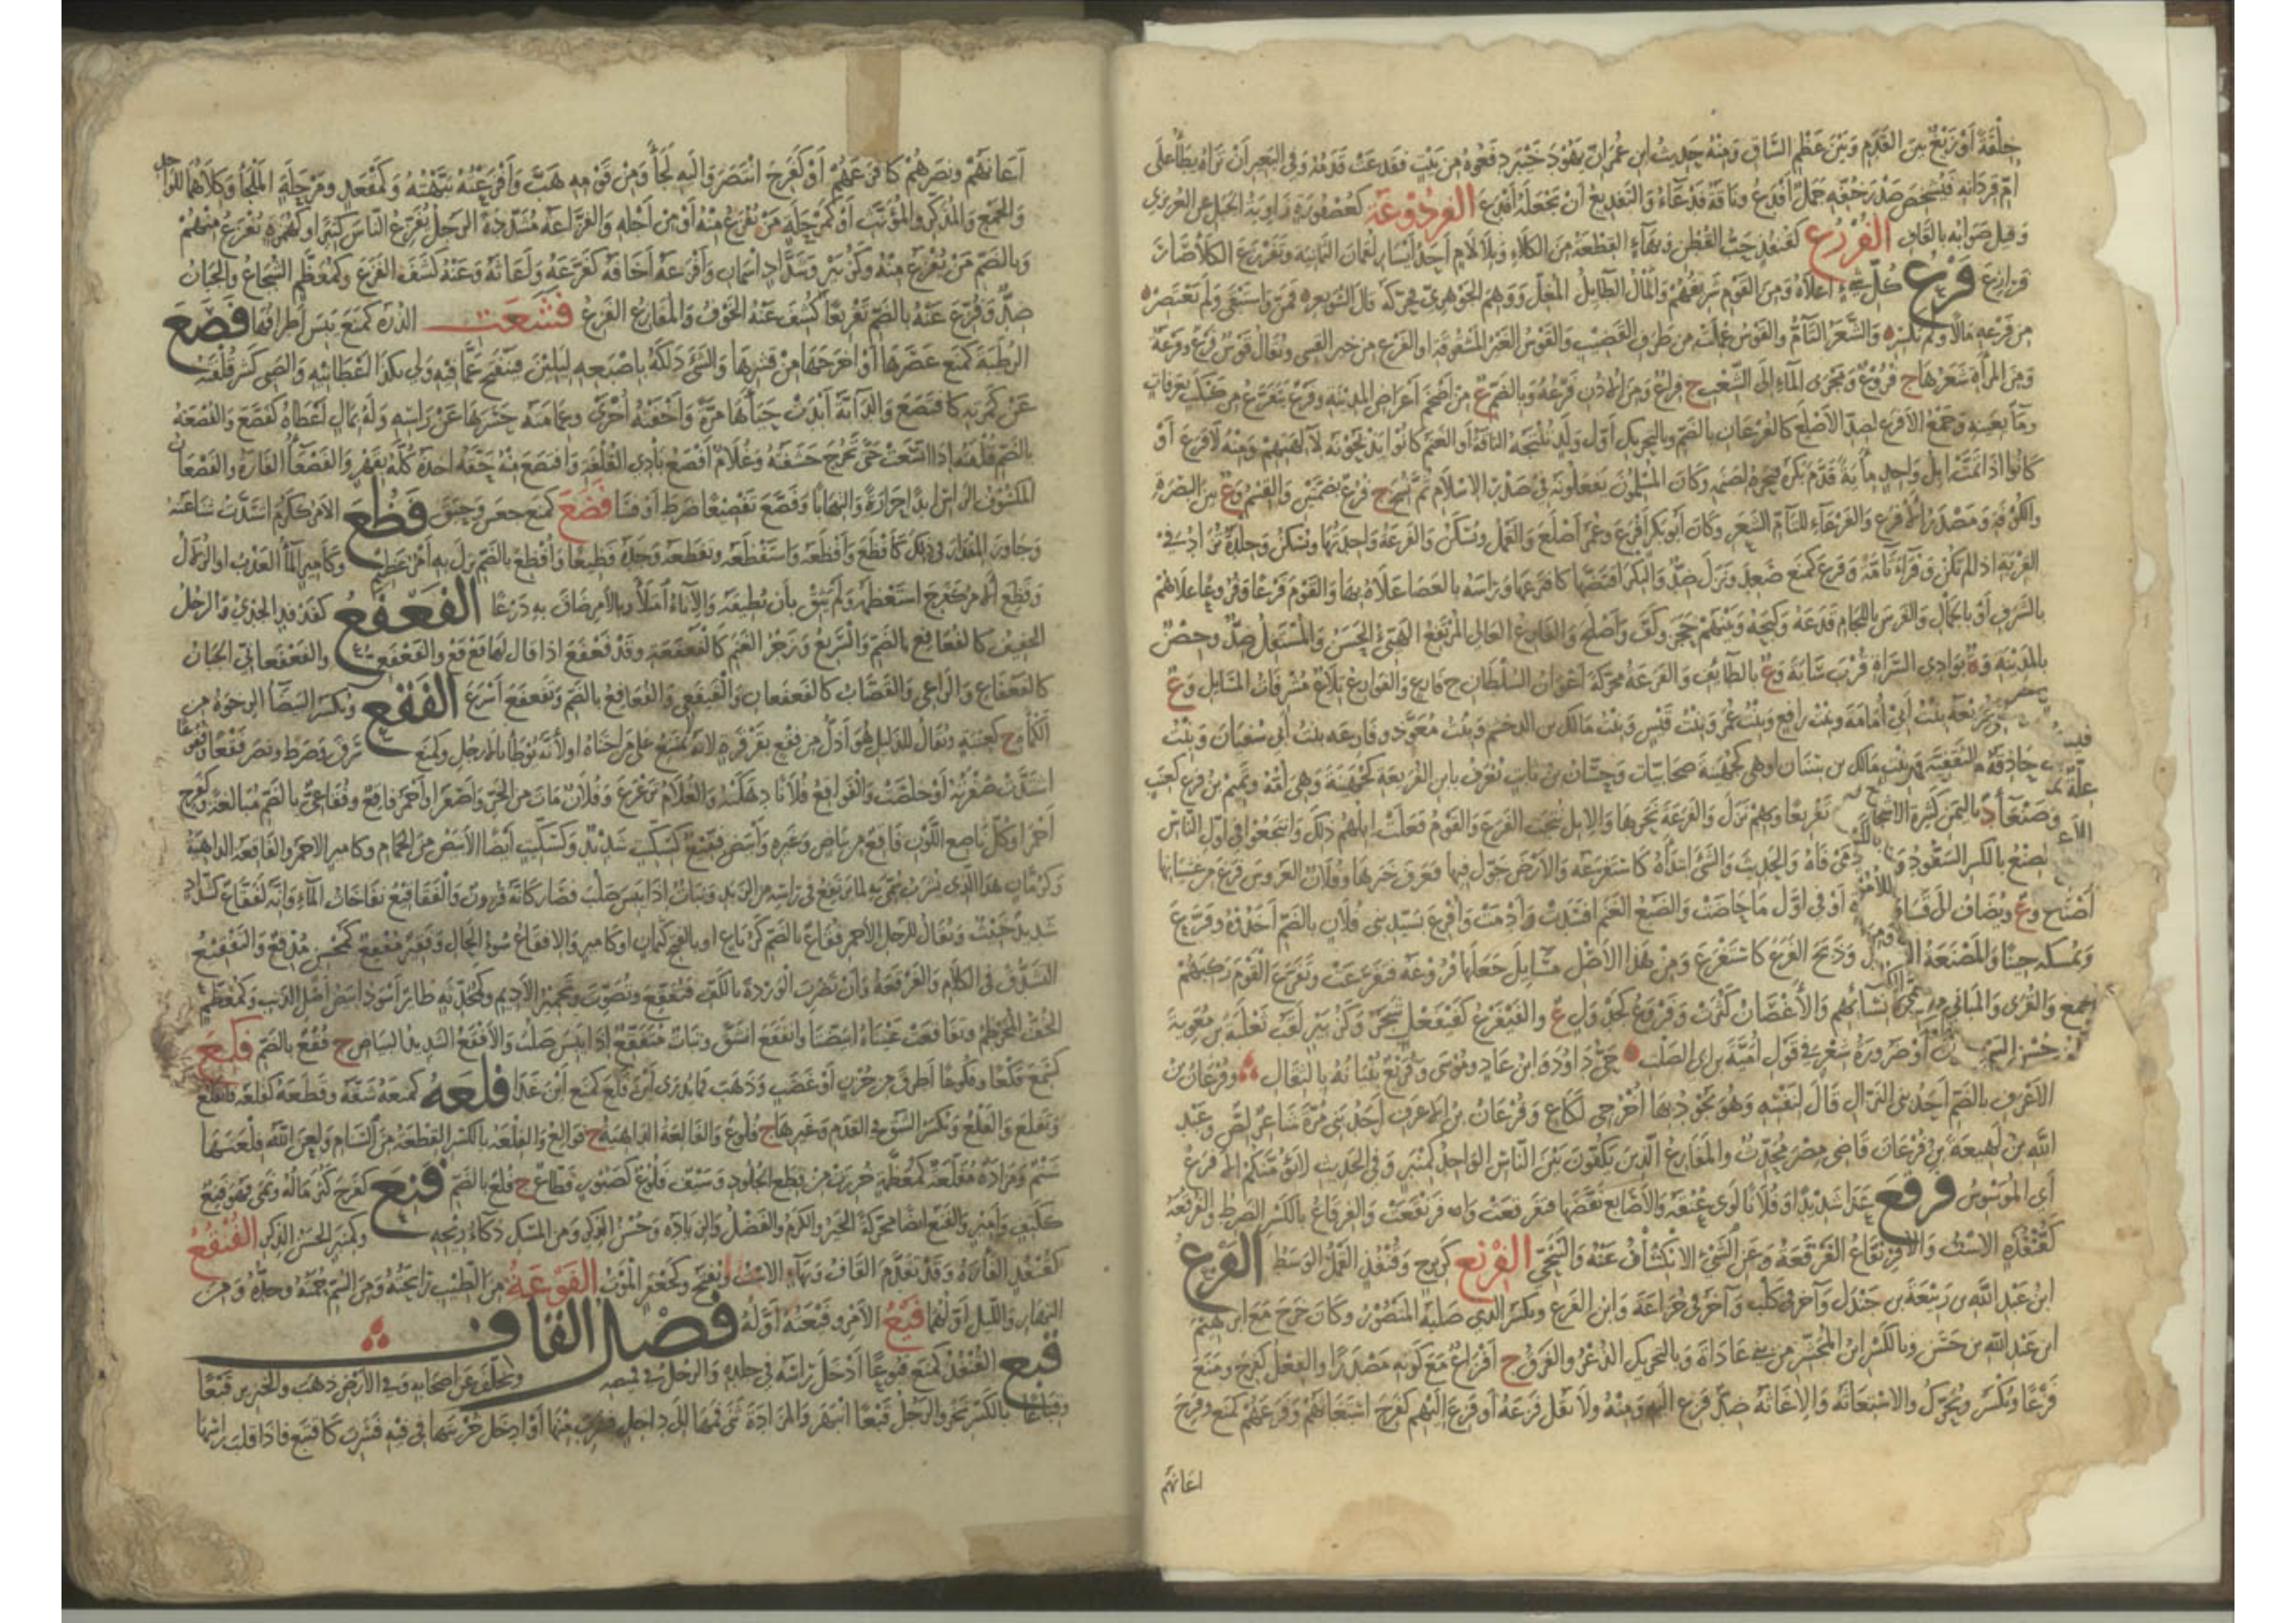 خِلْقَةً أَوْ زَيْغٌ بين القَدَمِ وبَيْنَ عَظْمِ السَّاقِ ومنْهُ حَدِيثُ ابنِ عُمَرَ أنّ يَهُودَ خَيْبَرَ دفعُوهُ من بَيْتٍ ففدعَتْ قَدَمُهُ وفي البَعيرِ أنْ تَراهُ يَطَأُ على
أمّ قِرْدَانِهِ فيَشْخَصُ صَدْرُ خُفِّهِ جَمَلٌ أفدعُ وناقَةٌ فَدْعَاءُ والتفديعُ أنْ تَجْعَلَهُ أفدَعَ الفُردُوعَة كعُصْفُورَةٍ زاوِيَةُ الجَبَلِ عن العُزيزي
وقيلَ صَوابُهُ بالقافِ الفُرْزُعُ كقُنْفُذٍ حَبُّ القُطْنِ وبهاءٍ القِطْعَةُ من الكَلاءِ وبلا لامٍ أحدُ أيسَارِ لُقمانَ الثمانيةِ وتَفَرْزَعَ الكَلأُ صَارَ
فرازِعَ فَرْعُ كُلِّ شيءٍ أعْلاهُ ومن القَوْمِ شَريفُهُمْ والمالُ الطَّائِلُ المُعَدُّ ووَهِمَ الجَوْهريّ فحرّكَهُ قالَ الشويعر فَمَنَّ واسْتَبْقَى ولم يَعْتَصِر
من فَرْعِهِ مالاً ولَمْ يكسر والشَّعَرُ التّامُّ والقَوْسُ عُمِلَتْ من طَرَفِ القَضِيبِ والقَوْسُ الغَيْرُ المَشْقُوقَةِ أو الفَرْعُ من خيرِ القِسي ويُقالُ قَوْسٌ فَرْعٌ وفَرْعَةٌ
ومن المَرْأَةِ شَعَرُها ج فُرُوعٌ ومَجْرَى الماءِ إلى الشِّعْبِ ج فِراعٌ ومن الأُذُنِ فَرْعُهُ وبالضّمِّ ع من أضخَمِ أعْراضِ المَدينَةِ وفَرْعٌ يَتَفَرَّعُ من كبكبٍ بعَرفاتٍ
وماءٌ بعينِهِ وجَمْعُ الأفرَعِ لِضِدِّ الأصْلَعِ كالفُرْعَانِ بالضّمِّ وبالتحريكِ أوَّلُ ولَدٍ تُنْتِجُهُ الناقَةُ أو الغَنَمُ كانُوا يذبَحُونَهُ لآلِهَتِهِمْ ومنْهُ لا فَرَعَ أوْ
كانُوا إذا تَمَّتْ إبِلُ واحِدٍ مِائَةً قَدَّمَ بَكْرَهُ فنَحَرَهُ لِصَنَمِهِ وكان المُسْلِمُونَ يَفْعَلُونَهُ في صَدْرِ الإسْلامِ ثُمَّ نُسِخَ ج فُرُعٌ بضَمَّتَيْنِ والقِسْمُ وع بين البَصْرَةِ
والكُوفةِ ومَصْدَرُ الأفْرَعِ والفَرْعَاءِ للتَّامِّ الشَّعَرِ وكانَ أبُو بكرٍ أفْرَعَ وعُمَرُ أصْلَعَ والقَمْلُ ويُسَكَّنُ والفَرَعَةُ واحِدَتُها وتُسَكَّنُ وجِلْدَةٌ تُزادُ في
القِرْبَةِ إذا لم تَكُنْ وفْراءَ تامّةً وفَرَعَ كمَنَعَ صَعِدَ ونَزَلَ ضِدٌّ والبِكْرَ افْتَضَّها كافترَعَها ورَأسَهُ بالعَصَا عَلاهُ بها والقَوْمَ فَرْعاً وفُرُوعاً علاهُمْ
بالشَّرَفِ أو بالجَمالِ والفَرَسَ باللِّجامِ قَدَعَهُ وكَبَحَهُ وبينهم حجَزَ وكَفَّ وأصْلَحَ والفارِعُ العالي المُرْتَفِعُ الهَيِّئُ الحَسَنُ والمُسْتَفِلُ ضِدٌّ وحِصْنٌ
بالمَدِينَةِ وة بوادِي السَّراةِ قُرْبَ سَايَةَ وع بالطَّائِفِ والفَرَعَةُ محرّكةً أعْوانُ السُّلْطانِ ج فارعٍ والفَوارِعُ تِلاعٌ مُشْرِفاتُ المَسَايِلِ وع
وفُرَيْعَةُ بِنْتُ أبي أُمامَةَ وبنتُ رافِعٍ وبنتُ عُمَرَ وبنتُ قَيْسٍ وبنتُ مالِكِ بن الدخشمِ وبنتُ مُعَوِّذٍ وفارِعَةُ بنتُ أبي سُفيانَ وبنتُ
الثقفية وبنتُ مالِك بن سِنانٍ أو هي كجُهَيْنَةَ صَحابِيّات وحسّانُ بن ثابتٍ يُعْرَفُ بابنِ الفُرَيْعَةِ كجُهَيْنَةَ وهي أمُّهُ وتَميمُ بنُ فِرَعٍ كعِنَبٍ
تَفْريعاً وبِهِمْ نَزَلَ والفَرَعَةَ نَحَرَها والإبِلُ نتجتِ الفَرَعَ والقَوْمُ فَعَلَتْ إبِلُهُمْ ذلكَ وانْتَجَعُوا في أوَّلِ النّاسِ
فاهُ والحَديثَ والشَّيءَ ابتَدَأهُ كاستَفْرَعَهُ والأرْضَ جَوَّلَ فيها فعَرَفَ خَبَرَها وفُلانٌ العَرُوسَ فَرَغَ من غِشْيانِها
أو في أوَّلِ ما حاضَتْ والضَّبُعُ الغَنَمَ أفسَدَتْ وأدْمَتْ وأُفْرِعَ بسَيِّدِ بني فُلانٍ بالضمِّ أخَذُوهُ وفرّعَ
وذَبَحَ الفَرَعَ كاسْتَفْرَعَ ومن هذا الأصْلِ مَسَائِلَ جَعَلَها فُرُوعَهُ فتَفَرَّعَتْ وتَفَرَّعَ القَوْمَ رَكِبَهُمْ
نِسَائِهم والأغْصَانُ كَثُرَتْ وفَرْوَعٌ كجَدْوَلٍ ع والفَيْفَرْعُ كفَيْفَعْلٍ شَجَرٌ وكزُبَيْرٍ لَقَبُ ثَعْلَبَةَ بن مُعوِيَةَ
أو ضَرُورَةُ شِعْرٍ في قَوْلِ أُمَيَّةَ بن أبي الصَّلْتِ حَيِّ دَاوُدَ وابْنَ عَادٍ ومُوسَى وفُرَيْعٌ بُنْيَانُهُ بالثِّقَالِ وفُرْعانُ بن
الأعْرَفِ بالضّمِّ أحَدُ بني النزّالِ قالَ لنَفْسِهِ وهُوَ يَجُودُ بها اخْرُجي لَكَاعِ وفُرْعَانُ بن الأعرف أحدُ بني مُرَّةَ شَاعِرٌ لِصٌّ وعبدُ
اللهِ بنُ لَهِيعَةَ بنِ فُرْعَانَ قاضِي مِصْرَ مُحَدِّثٌ والمَفارِعُ الّذِينَ يَكُفُّونَ بَيْنَ النّاسِ الواحِدُ كمِنْبَرٍ وفي الحَديثِ لا يَؤُمَّنّكُم الأفرع
أي المُوَسْوِسُ فَرْقَعَ عَدَا شَديداً وفُلاناً لوَى عُنُقَهُ والأصَابِعَ نَقَّضَها فتَفَرْقَعَتْ وافرَنْقَعَتْ والفِرْقاعُ بالكَسْرِ الضَّرِطُ والفُرْقُعَةُ
كقُنْفُذَةٍ الاسْتُ والافْرِنْقَاعُ الفَرْقَعَةُ وعَنِ الشَّيءِ الانْكِشَافُ عَنْهُ والتَّنَحِّي الفِرْنِعُ كزِبْرِجٍ وقُنْفُذٍ القَمْلُ الوَسَطُ الفَزَعُ
ابنُ عَبْدِ اللهِ بن رَبِيعَةَ بن جَنْدَلٍ وآخَرُ في كَلْبٍ وآخَرُ في خُزاعَةَ وابن الفَزَعِ ويُكسَرُ الذي صَلَبَهُ المَنْصُورُ وكانَ خَرَجَ مَعَ إبرهيمَ
ابن عَبْدِ اللهِ بن حَسَنٍ وبالكَسْرِ ابنُ المُجَشّرِ من بني عَاداةَ وبالتحريكِ الذُّعْرُ والفَرَقُ ج أفْزَاعٌ مَعَ كَوْنِهِ مَصْدَراً والفِعْلُ كفَرِحَ ومَنَعَ
فَزْعاً ويُكْسَرُ ويُحَرَّكُ والاسْتِغاثَةُ والإغاثَةُ ضِدٌّ فَزِعَ إليه ومِنْهُ ولا تَقُلْ فَزِعَهُ أو فَزِعَ إليهِم كفَرِحَ استَغَاثَهُمْ وفَزَعَهُمْ كمَنَعَ وفَرِحَ
اغاثهم
أغاثَهُمْ ونَصَرَهُمْ كأفزَعَهُمْ أو كفَرِحَ انْتَصَرَ وإليهِ لَجَأَ ومن نَوْمِهِ هَبَّ وأفْزَعْتُهُ نَبَّهْتُهُ وكمَقْعَدٍ ومَرْحَلَةٍ المَلْجَأُ وكِلاهُما للواحِدِ
والجَمْعِ والمُذَكَّرِ والمُؤَنَّثِ أو كمَرْحَلَةٍ مَنْ يُفْزَعُ مِنْهُ أو مِنْ أجْلِهِ والفَزَّاعَةُ مُشَدَّدَةً الرَّجُلُ يُفَزِّعُ النّاسَ كَثيراً وكهُمَزَةٍ يَفْزَعُ مِنْهُمْ
وبالضّمِّ مَنْ يُفْزَعُ مِنْهُ وكزُبَيْرٍ وشَدَّادٍ اسْمانِ وأفْزَعَهُ أخَافَهُ كفَزّعَهُ وأغاثَهُ وعَنْهُ كَشَفَ الفَزَعَ وكمُعَظّمٍ الشُّجَاعُ والجَبَانُ
ضِدٌّ وفُزِّعَ عَنْهُ بالضّمِّ تَفْزيعاً كُشِفَ عَنْهُ الخَوْفُ والمَفازِعُ الفَزَعُ فَشَعَت الذُّرَةُ كمَنَعَ يَبِسَ أطرافُها فَصَعَ
الرُّطَبَةَ كمَنَعَ عَصَرَها أو أخرَجَها مِنْ قِشْرِها والشَّيءَ دَلَكَهُ بإصْبَعِهِ ليَلِينَ فيَنْفَتِحَ عَمّا فيهِ ولي بكذا أعْطانِيهِ والصبي كشَرَ قُلْفَتَهُ
عَنْ كَمَرَتِهِ كافتَصَعَ والدّابّةُ أبْدَتْ حَيَاءَها مَرّةً وأخْفَتْهُ أُخْرَى وعِمامَتَهُ حَسَرَها عَنْ رَأسِهِ ولَهُ بمَالٍ أعْطاهُ كفَصّعَ والفُصْعَةُ
بالضّمِّ قُلْفَتُهُ إذا اتّسَعَتْ حتّى تَخْرُجَ حَشَفَتُهُ وغُلامٌ أفْصَعُ بادِي القُلْفَةِ وافتَصَعَ مِنْهُ حَقّهُ أخَذَهُ كُلّهُ بقَهْرٍ والفَصْعَاءُ الفَارَةُ والفَصْعَانُ
المَكشُوفُ الرّأسِ أبداً حَرارةً والتهاباً وفَصّعَ تَفْصِيعاً ضَرِطَ أو فَسَا فَضَعَ كمَنَعَ جعسَ وحبَقَ فَظُعَ الأمْرُ ككَرُمَ اشتدّتْ شَناعَتُهُ
وجاوزَ المِقْدارَ في ذلكَ كأفْظَعَ وأفْظَعَهُ واستَفْظَعَهُ وتَفَظَّعَهُ وجَدَهُ فظيعاً وأُفْظِعَ بالضّمِّ نزَلَ بهِ أمْرٌ عَظيمٌ وكأميرٍ الماءُ العَذْبُ أو الزُّلالُ
وفَظِعَ بالأمْرِ كفَرِحَ استَعْظَمَهُ ولَمْ يَثِقْ بأنْ يُطيقَهُ والإناءُ امتَلأ وبالأمرِ ضاقَ بهِ ذَرْعاً الفَعْفَع كفَدْفَدٍ الجَدْيُ والرَّجُلُ
الخَفيفُ كالفُعافِعِ بالضّمِّ والسَّريعُ وزَجْرُ الغَنَمِ كالفَعْفَعَةِ وقَدْ فَعْفَعَ إذا قالَ لها فَعْ فَعْ والفَعْفَعِيُّ والفَعْفَعانيُّ الجَبَانُ
كالفَعْفَاعِ والرّاعِي والقَصّابُ كالفَعْفَعانِ والفَعْفَعي والفُعَافِعُ بالضّمِّ وتَفَعْفَعَ أسْرَعَ الفَقْع ويُكسَرُ البَيْضَاءُ الرِّخْوَةُ من
الكَمْأةِ ج كعِنَبَةٍ ويُقالُ للذّليلِ هُوَ أذَلُّ من فَقْعٍ بقَرْقَرَةٍ لأنّهُ لا يمتنعُ على من اجْتَناهُ أو لأنّهُ يُوطَأُ بالأرْجُلِ وكمَنَعَ سَرَقَ وضَرَطَ ونَصَرَ فَقْعاً وفُقُوعاً
اشتَدّتْ صُفْرَتُهُ أو خَلَصَتْ والفَوَاقِعُ فُلاناً أهْلَكَتْهُ والغُلامُ تَرَعْرَعَ وفُلانٌ مَاتَ من الحَرِّ وأصْفَرُ أو أحْمَرُ فاقِعٌ وفُقَاعيٌّ بالضّمِّ مُبالَغَةٌ وكفَرِحَ
احمَرَّ أو كُلُّ ناصِعِ اللَّوْنِ فاقِعٌ من بَيَاضٍ وغَيرِهِ وأبْيَضُ فِقّيعٌ كسِكّيتٍ شَدِيدٌ وكسِكّيتٍ أيضاً الأبْيَضُ مِنَ الحَمامِ وكأميرٍ الأحمَرُ والفاقِعَةُ الداهِيَةُ
وكرُمّانٍ هذا الّذي يُشْرَبُ سُمّي بهِ لما يَرتَفِعُ في رَأسِهِ من الزّبَدِ ونَبَاتٌ إذا يَبِسَ صَلُبَ فصَارَ كأنّهُ قُرُونٌ والفَقَاقِيعُ نُفّاخَاتُ الماءِ وإنّهُ لفَقّاعٌ كشَدّادٍ
شَديدٌ خَبيثٌ ويُقالُ للرّجُلِ الأحمرِ فُقَاعٌ بالضّمِّ كرُبَاعٍ أو بالفتح كثَمانٍ أو كأميرٍ والإفقاعُ سُوءُ الحَالِ وفَقيرٌ مُفْقِعٌ كمُحْسِنٍ مُدْقِعٌ والتَّفْقِيعُ
التّشَدُّقُ في الكلامِ والفَرْقَعَةُ وأنْ تَضْرِبَ الوَرْدَةَ بالكَفِّ فتُفَقِّعَ وتُصَوِّتَ وتَحْمِيرُ الأديمِ وكمُحَدِّثةٍ طائِرٌ أسْوَدُ أبيَضُ أصْلِ الذّنَبِ وكمُعَظّمٍ
الخُفُّ المُخَرْطَمُ وتَفَاقَعَتْ عَيْنَاهُ ابيَضّتَا وانفَقَعَ انشَقَّ ونباتٌ مُتَفَقِّعٌ إذا يَبِسَ صَلُبَ والأفقَعُ الشّديدُ البَياضِ ج فُقْعٌ بالضّمِّ فَكَعَ
كسَمِعَ فَكْعاً وفُكُوعاً أطرَقَ من حُزْنٍ أو غَضَبٍ وذَهَبَ فما يُدرَى أيْنَ فَكَعَ كمَنَعَ أيْنَ غَدَا فَلَعَهُ كمَنَعَهُ شَقّهُ وقَطَعَهُ كفَلّعَهُ فانفَلَعَ
وتَفَلّعَ والفَلْعُ ويُكسَرُ الشّقُّ في القَدَمِ وغَيرِها ج فُلُوعٌ والفالِعَةُ الدّاهِيَةُ ج فَوَالِعُ والفِلْعَةُ بالكَسْرِ القِطْعَةُ مِنَ السَّنَامِ ولَعَنَ اللهُ فِلْعَتَهَا
شَتْمٌ ومَزَادَةٌ مُفَلّعَةٌ كمُعَظّمَةٍ خُرِزَتْ مِنْ قِطَعِ الجُلُودِ وسَيْفٌ فَلُوعٌ كصَبُورٍ قَطّاعٌ ج فُلْعٌ بالضّمِّ فَنِعَ كفَرِحَ كَثُرَ مَالُهُ ونَمَى فهُوَ فَنِعٌ
ككَتِفٍ وأمِيرٍ والفَنَعُ أيضاً محرّكةً الخَيرُ والكَرَمُ والفَضْلُ والزّيادَةُ وحُسْنُ الذّكرِ ومن المِسْكِ ذَكاءُ رِيحِهِ وكمِنْبَرٍ الحَسَنُ الذّكرِ الفُنْقُعُ
كقُنْفُذٍ الفَأرَةُ وقَدْ تَقَدّمَ القافُ وبهاءٍ الاسْتُ ويُفْتَحُ وكجَعْفَرٍ المَوْتُ الفَوْعَةُ من الطّيبِ رَائِحَتُهُ ومن السُّمِّ حُمَتُهُ وحَدُّهُ ومن
النّهارِ واللّيلِ أوّلُهُما فَيْعُ الأمْرِ وفَيْعَتُهُ أوَّلُهُ فصل القاف
قَبَعَ القُنْفُذُ كمَنَعَ قُبُوعاً أدْخَلَ رَأسَهُ في جِلدِهِ والرّجُلُ في قَميصِهِ وتَخَلّفَ عَنْ أصْحَابِهِ وفي الأرْضِ ذَهَبَ والخِنْزِيرُ قَبْعاً
وقِبَاعاً بالكَسْرِ نَخَرَ والرّجُلُ قَبْعاً انْبَهَرَ والمَزَادَةَ ثَنَى فَمَها إلى داخِلٍ فشَرِبَ مِنْها أو أدخَلَ خُرْبَتَها في فيهِ فشَرِبَ كاقتَبَعَ فإذا قلَبَ رَأسَها